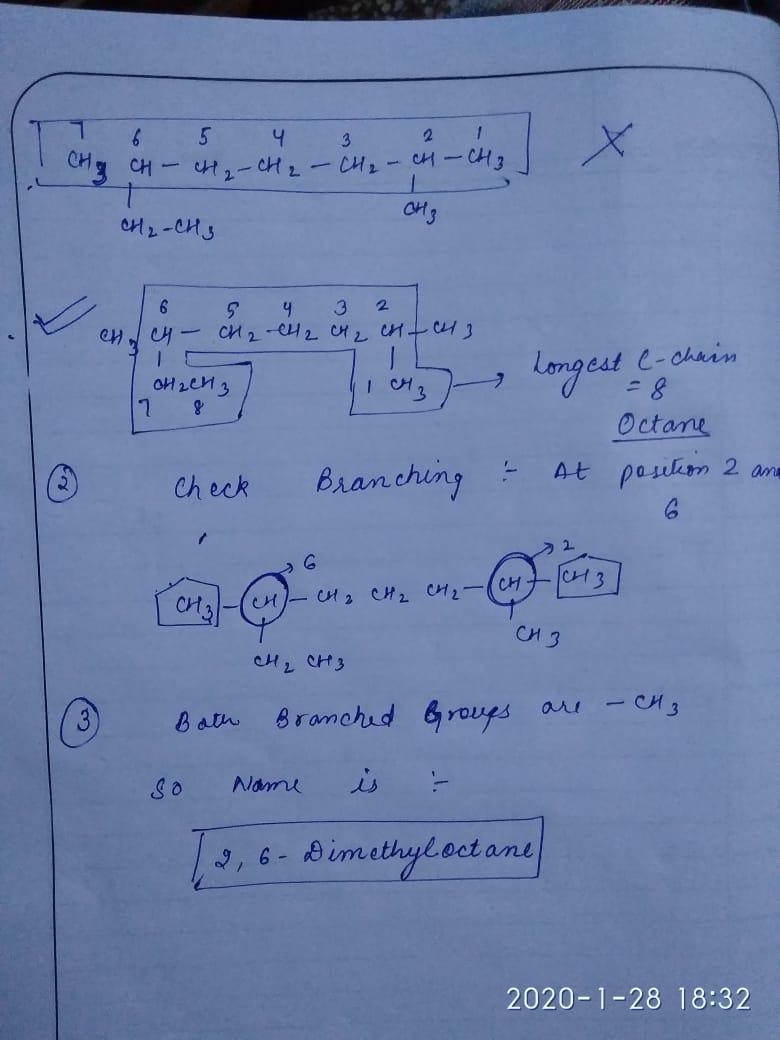 7 6 5 4 3 2 1
CH3 CH - CH2 - CH2 - CH2 - CH - CH3
CH3
CH2 - CH3
6 5 4 3 2
CH3 CH - CH2 - CH2 CH2 CH - CH3
CH2CH3 1 CH3 → Longest C-chain
7 8 = 8
Octane
2 Check Branching :- At position 2 and
6
6 2
CH3 - CH - CH2 CH2 CH2 - CH - CH3
CH3
CH2 CH3
3 Both Branched Groups are - CH3
So Name is :-
2, 6 - Dimethyloctane
2020-1-28 18:32